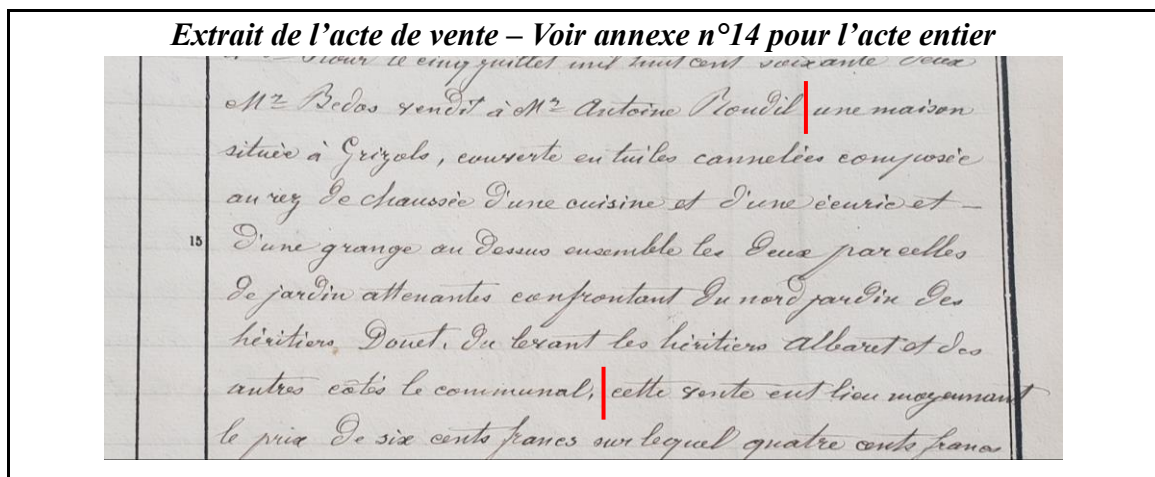 Extrait de l’acte de vente – Voir annexe n°14 pour l’acte entier
le cinq juillet mil huit cent soixante deux
Mr Bedos vendit à Mr Antoine Roudil une maison
située à Grizols, couverte en tuiles cannelées composée
au rez de chaussée d'une cuisine et d'une écurie et –
15 d'une grange au dessus ensemble les deux parcelles
de jardin attenantes confrontant du nord jardin des
héritiers Douet, du levant les héritiers Albaret et des
autres côtés le communal, cette vente eut lieu moyennant
le prix de six cents francs sur lequel quatre cents francs